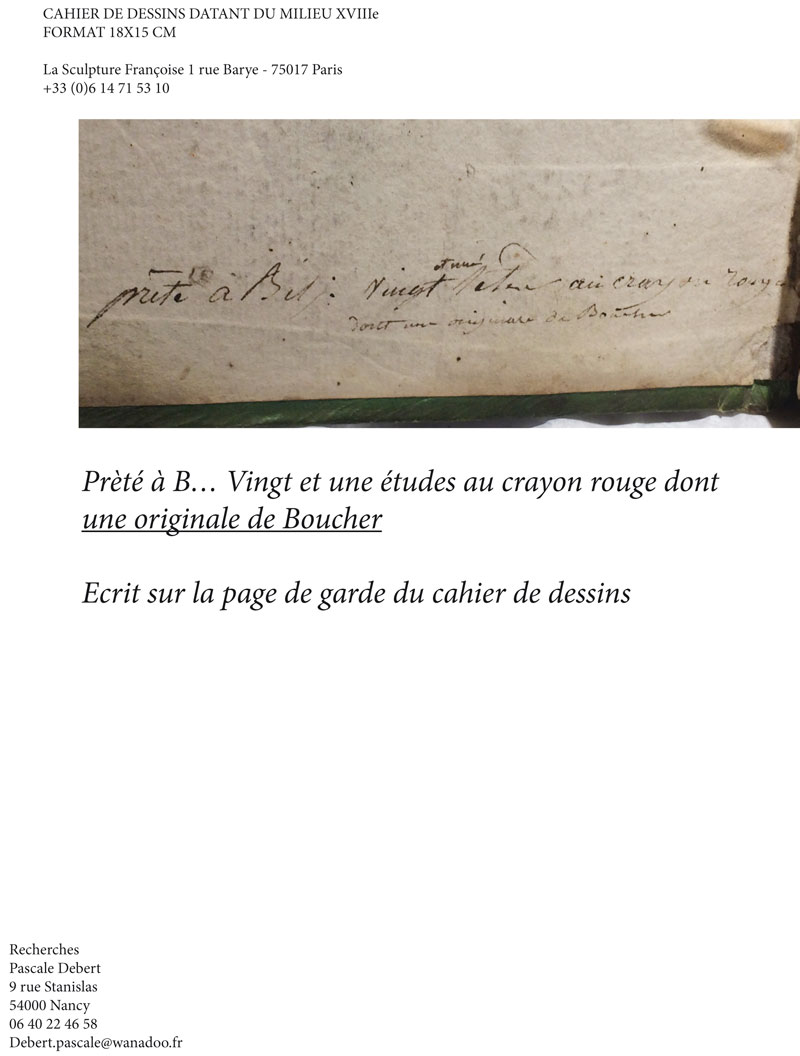 CAHIER DE DESSINS DATANT DU MILIEU XVIIIe
FORMAT 18X15 CM
La Sculpture Françoise 1 rue Barye - 75017 Paris
+33 (0)6 14 71 53 10
et une
prêté à Vingt au crayon rouge
dont une originale de Boucher
Prèté à B… Vingt et une études au crayon rouge dont
une originale de Boucher
Ecrit sur la page de garde du cahier de dessins
Recherches
Pascale Debert
9 rue Stanislas
54000 Nancy
06 40 22 46 58
Debert.pascale@wanadoo.fr